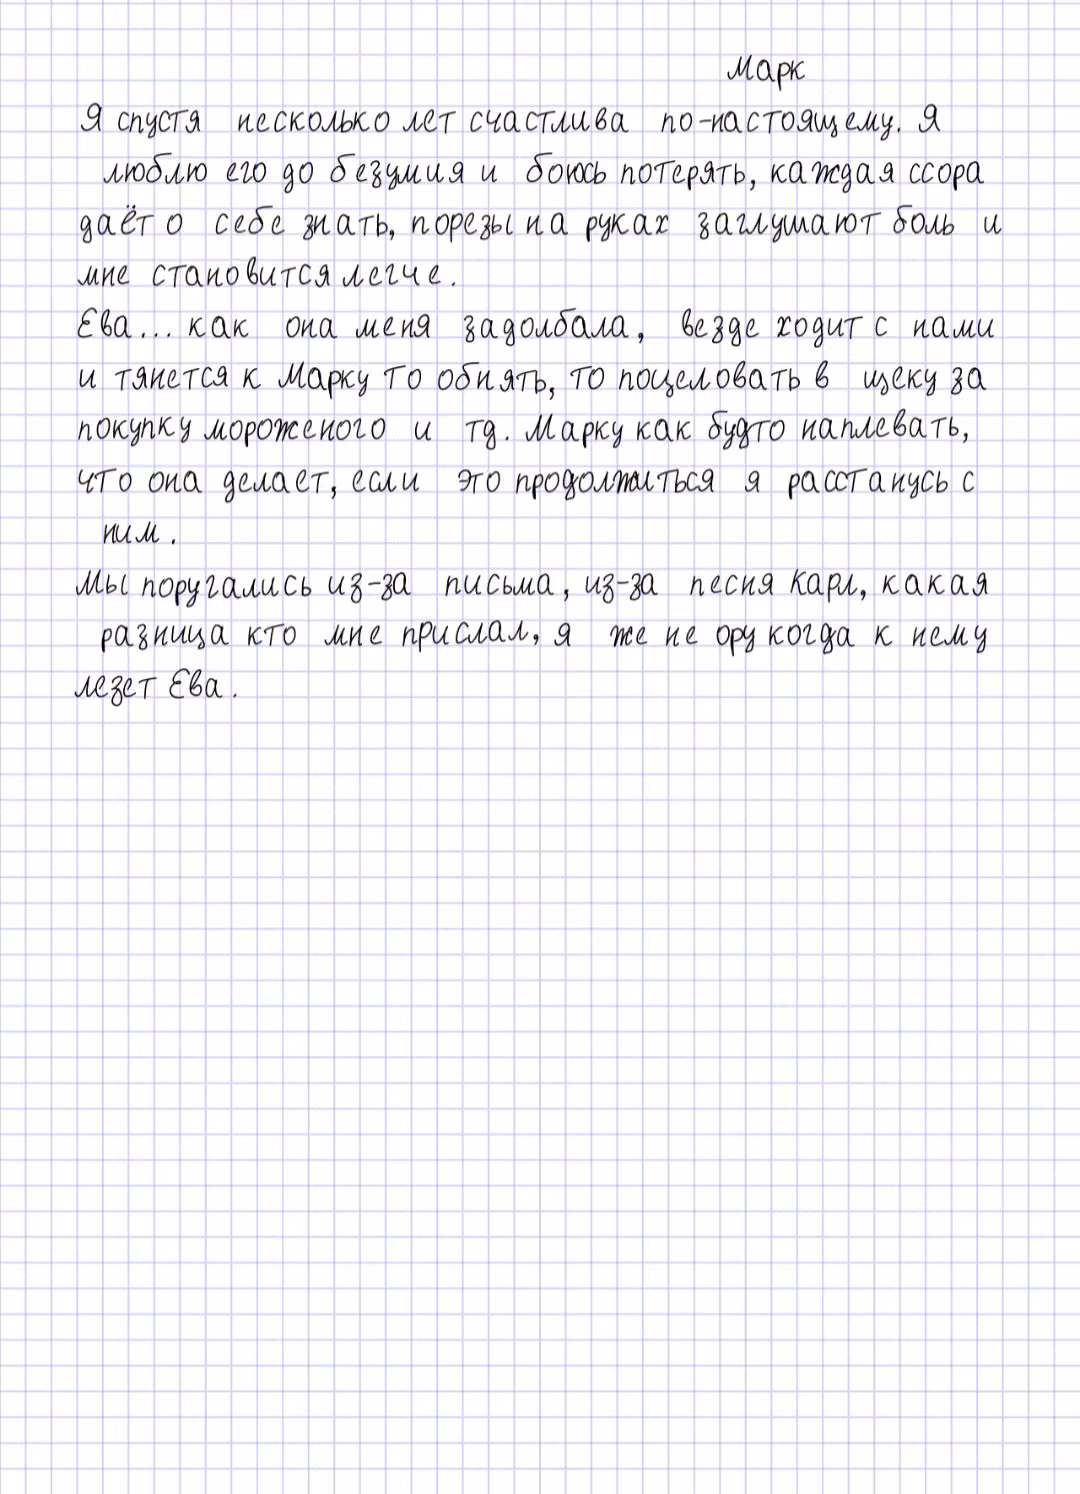 Марк
Я спустя несколько лет счастлива по-настоящему. Я
люблю его до безумия и боюсь потерять, каждая ссора
даёт о себе знать, порезы на руках заглушают боль и
мне становится легче.
Ева... как она меня задолбала, везде ходит с нами
и тянется к Марку то обнять, то поцеловать в щеку за
покупку мороженого и тд. Марку как будто наплевать,
что она делает, если это продолжиться я расстанусь с
ним.
Мы поругались из-за письма, из-за песня Карл, какая
разница кто мне прислал, я же не ору когда к нему
лезет Ева.